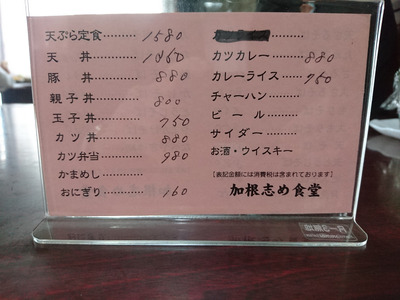 天ぷら定食………1580
天　丼…………1060
豚　丼…………880
親子丼…………800
玉子丼…………750
カツ丼…………880
カツ弁当………980
かまめし…………
おにぎり………160
カツカレー……880
カレーライス…750
チャーハン………
ビール……………
サイダー…………
お酒・ウイスキー
【表記金額には消費税は含まれております】
加根志め食堂